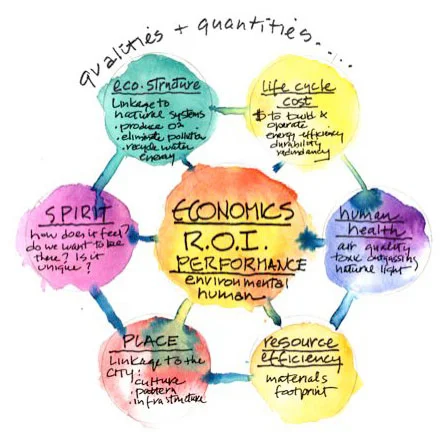 qualities + quantities.....
eco.structure
Linkage to
natural systems
• produce O2
• eliminate pollution
• recycle water
energy
life cycle
cost
$ to build &
operate
energy efficiency
durability
redundancy
SPIRIT
how does it feel?
do we want to be
there? Is it
unique?
ECONOMICS
R.O.I.
PERFORMANCE
environmental
human
human
health
air quality
toxic outgassing
natural light
PLACE
Linkage to the
CITY:
• culture
• pattern
• infrastructure
resource
efficiency
materials
footprint